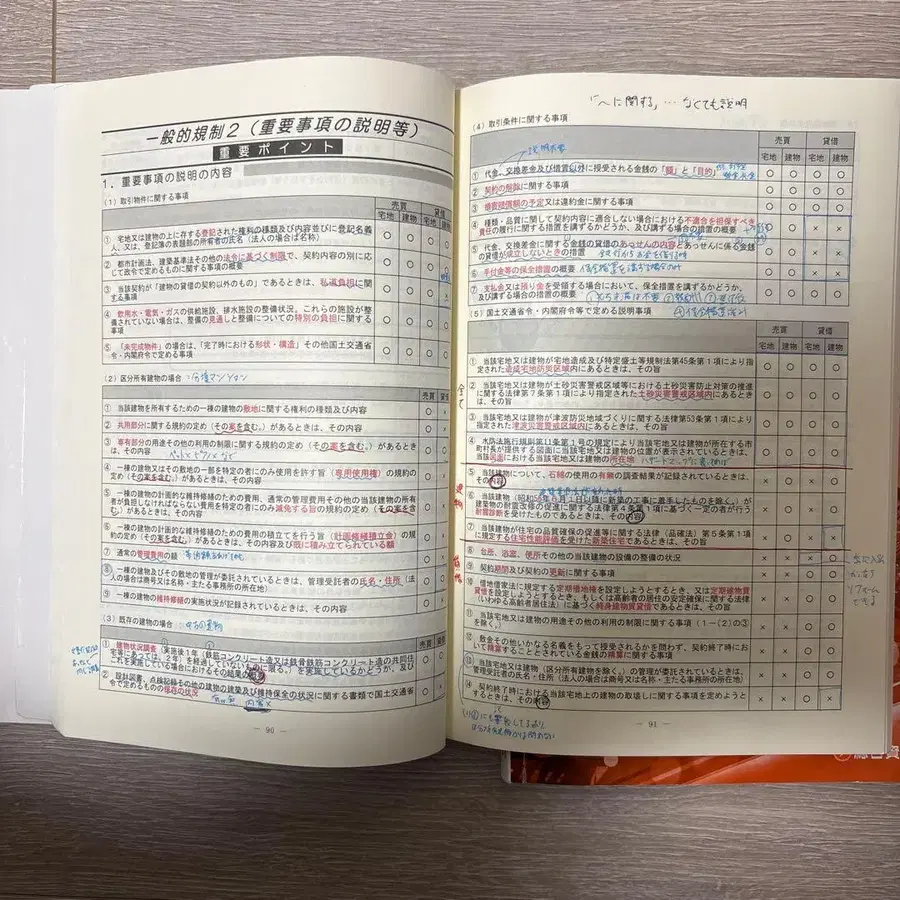 一般的規制2(重要事項の説明等)
重要ポイント
1.重要事項の説明の内容
(1)取引物件に関する事項
売買 貸借
宅地 建物 宅地 建物
① 宅地又は建物の上に存する登記された権利の種類及び内容並びに登記名義
人、又は、登記簿の表題部の所有者の氏名(法人の場合は名称)
② 都市計画法、建築基準法その他の法令に基づく制限で、契約内容の別に応
じて政令で定めるものに関する事項の概要
③ 当該契約が「建物の貸借の契約以外のもの」であるときは、私道負担に関
する事項
④ 飲用水・電気・ガスの供給施設、排水施設の整備状況、これらの施設が整
備されていない場合は、整備の見通しと整備についての特別の負担に関する
事項
⑤ 「未完成物件」の場合は、「完了時における形状・構造」その他国土交通省
令・内閣府令で定める事項
(2)区分所有建物の場合 分譲マンション
売買 貸借
① 当該建物を所有するための一棟の建物の敷地に関する権利の種類及び内容
② 共用部分に関する規約の定め(その案を含む。)があるときは、その内容
③ 専有部分の用途その他の利用の制限に関する規約の定め(その案を含む。)があるときは、
その内容
④ 一棟の建物又はその敷地の一部を特定の者にのみ使用を許す旨(専用使用権)の規約の
定め(その案を含む。)があるときは、その内容
⑤ 一棟の建物の計画的な維持修繕のための費用、通常の管理費用その他の当該建物の所有
者が負担しなければならない費用を特定の者にのみ減免する旨の規約の定め(その案を含
む。)があるときは、その内容
⑥ 一棟の建物の計画的な維持修繕のための費用の積立てを行う旨(計画修繕積立金)の規
約の定め(その案を含む。)があるときは、その内容及び既に積み立てられている額
⑦ 通常の管理費用の額
⑧ 一棟の建物及びその敷地の管理が委託されているときは、管理受託者の氏名・住所(法
人の場合は商号又は名称・主たる事務所の所在地)
⑨ 一棟の建物の維持修繕の実施状況が記録されているときは、その内容
(3)既存の建物の場合 中古建物
売買 貸借
① 建物状況調査(実施後1年(鉄筋コンクリート造又は鉄骨鉄筋コンクリート造の共同住
宅等にあっては、2年)を経過していないものに限る。)を実施しているかどうか、及び
これを実施している場合におけるその結果の概要
② 設計図書、点検記録その他の建物の建築及び維持保全の状況に関する書類で国土交通省
令で定めるものの保存の状況
― 90 ―
「〜に関する」… なくても説明
(4)取引条件に関する事項
売買 貸借
宅地 建物 宅地 建物
① 代金、交換差金及び借賃以外に授受される金銭の「額」と「目的」
② 契約の解除に関する事項
③ 損害賠償額の予定又は違約金に関する事項
④ 種類・品質に関して契約内容に適合しない場合における不適合を担保すべき
責任の履行に関する措置を講ずるかどうか、及び講ずる場合の措置の概要
⑤ 代金、交換差金に関する金銭の貸借のあっせんの内容とあっせんに係る金銭
の貸借が成立しないときの措置
⑥ 手付金等の保全措置の概要
⑦ 支払金又は預り金を受領する場合において、保全措置を講ずるかどうか、
及び講ずる場合の措置の概要
(5)国土交通省令・内閣府令等で定める説明事項
売買 貸借
宅地 建物 宅地 建物
① 当該宅地又は建物が宅地造成及び特定盛土等規制法第45条第1項により指
定された造成宅地防災区域内にあるときは、その旨
② 当該宅地又は建物が土砂災害警戒区域等における土砂災害防止対策の推進
に関する法律第7条第1項により指定された土砂災害警戒区域内にあるときは、
その旨
③ 当該宅地又は建物が津波防災地域づくりに関する法律第53条第1項により
指定された津波災害警戒区域内にあるときは、その旨
④ 水防法施行規則第11条第1号の規定により当該宅地又は建物が所在する市
町村長が提供する図面に当該宅地又は建物の位置が表示されているときは、
当該図面における当該宅地又は建物の所在地
⑤ 当該建物について、石綿の使用の有無の調査結果が記録されているときは、
その内容
⑥ 当該建物(昭和56年6月1日以降に新築の工事に着手したものを除く。)が
建築物の耐震改修の促進に関する法律第4条第1項に基づく一定の者が行う
耐震診断を受けたものであるときは、その内容
⑦ 当該建物が住宅の品質確保の促進等に関する法律(品確法)第5条第1項
に規定する住宅性能評価を受けた新築住宅であるときは、その旨
⑧ 台所、浴室、便所その他の当該建物の設備の整備の状況
⑨ 契約期間及び契約の更新に関する事項
⑩ 借地借家法に規定する定期借地権を設定しようとするとき、又は定期建物賃
貸借をしようとするとき、もしくは高齢者の居住の安定確保に関する法律
(いわゆる高齢者居住法)に基づく終身建物賃貸借であるときは、その旨
⑪ 当該宅地又は建物の用途その他の利用の制限に関する事項(1-(2)の③
を除く。)
⑫ 敷金その他いかなる名義をもって授受されるかを問わず、契約終了時にお
いて精算することとされている金銭の精算に関する事項
⑬ 当該宅地又は建物(区分所有建物を除く。)の管理が委託されているときは、
管理受託者の氏名・住所(法人の場合は商号又は名称・主たる事務所の所在地)
⑭ 契約終了時における当該宅地上の建物の取壊しに関する事項を定めようと
するときは、その内容
― 91 ―